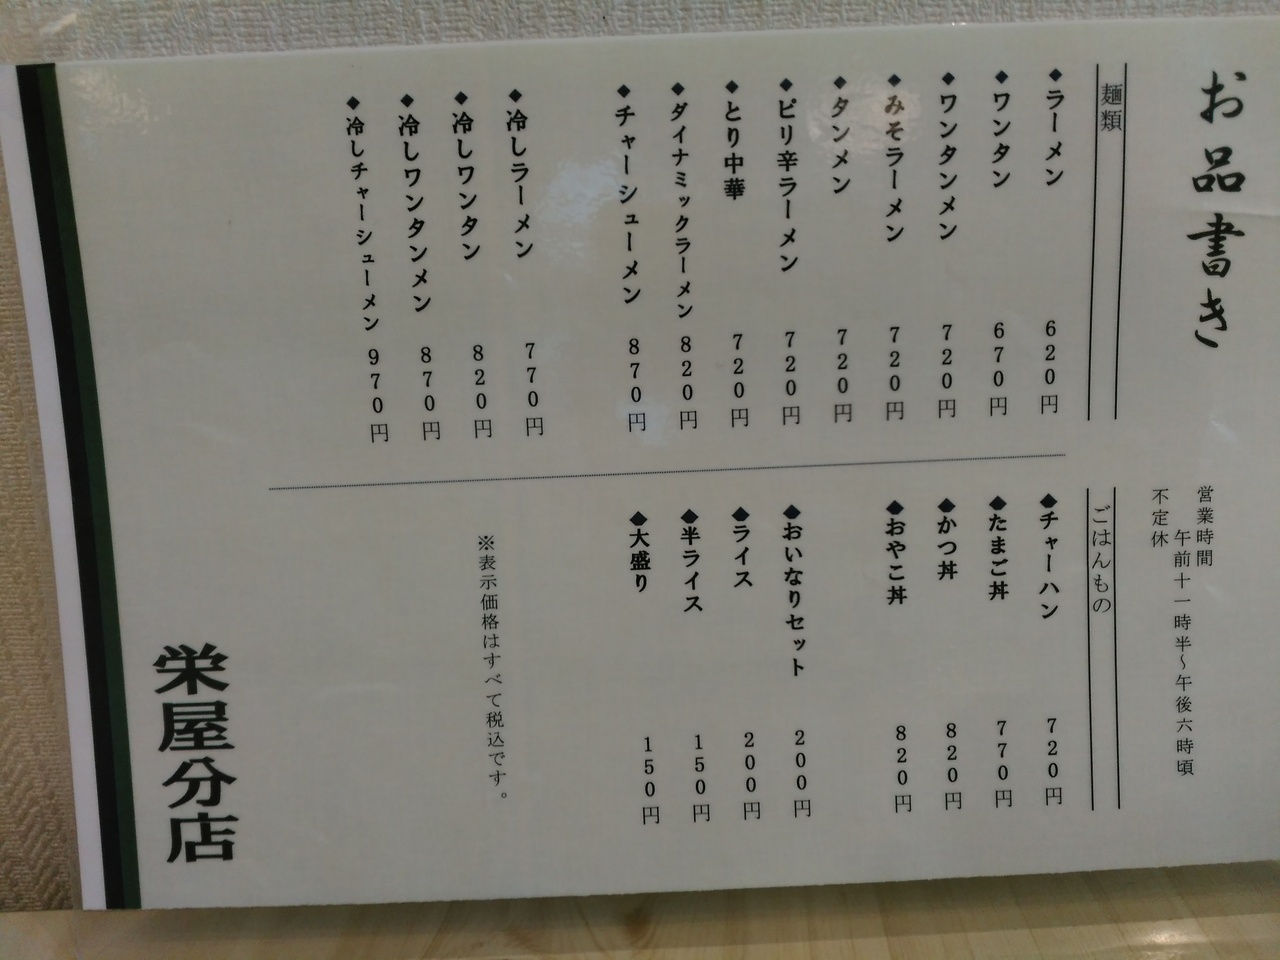 お品書き
営業時間
午前十一時半〜午後六時頃
不定休
麺類
◆ラーメン 620円
◆ワンタン 670円
◆ワンタンメン 720円
◆みそラーメン 720円
◆タンメン 720円
◆ピリ辛ラーメン 720円
◆とり中華 720円
◆ダイナミックラーメン 820円
◆チャーシューメン 870円
◆冷しラーメン 770円
◆冷しワンタン 820円
◆冷しワンタンメン 870円
◆冷しチャーシューメン 970円
ごはんもの
◆チャーハン 720円
◆たまご丼 770円
◆かつ丼 820円
◆おやこ丼 820円
◆おいなりセット 200円
◆ライス 200円
◆半ライス 150円
◆大盛り 150円
※表示価格はすべて税込です。
栄屋分店